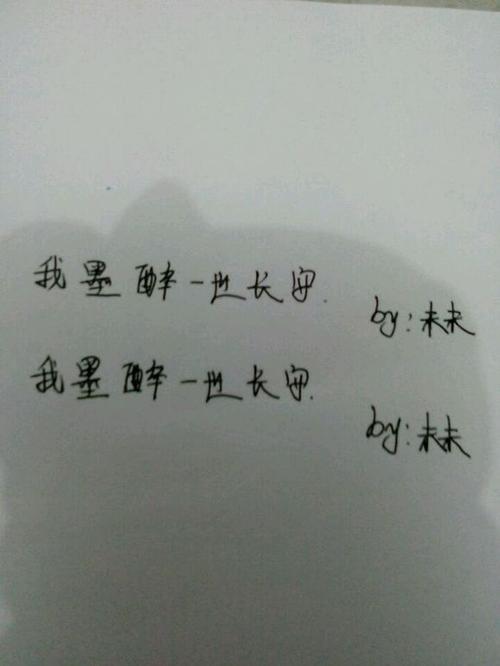 我墨醉一世长安.
by:未未
我墨醉一世长安.
by:未未